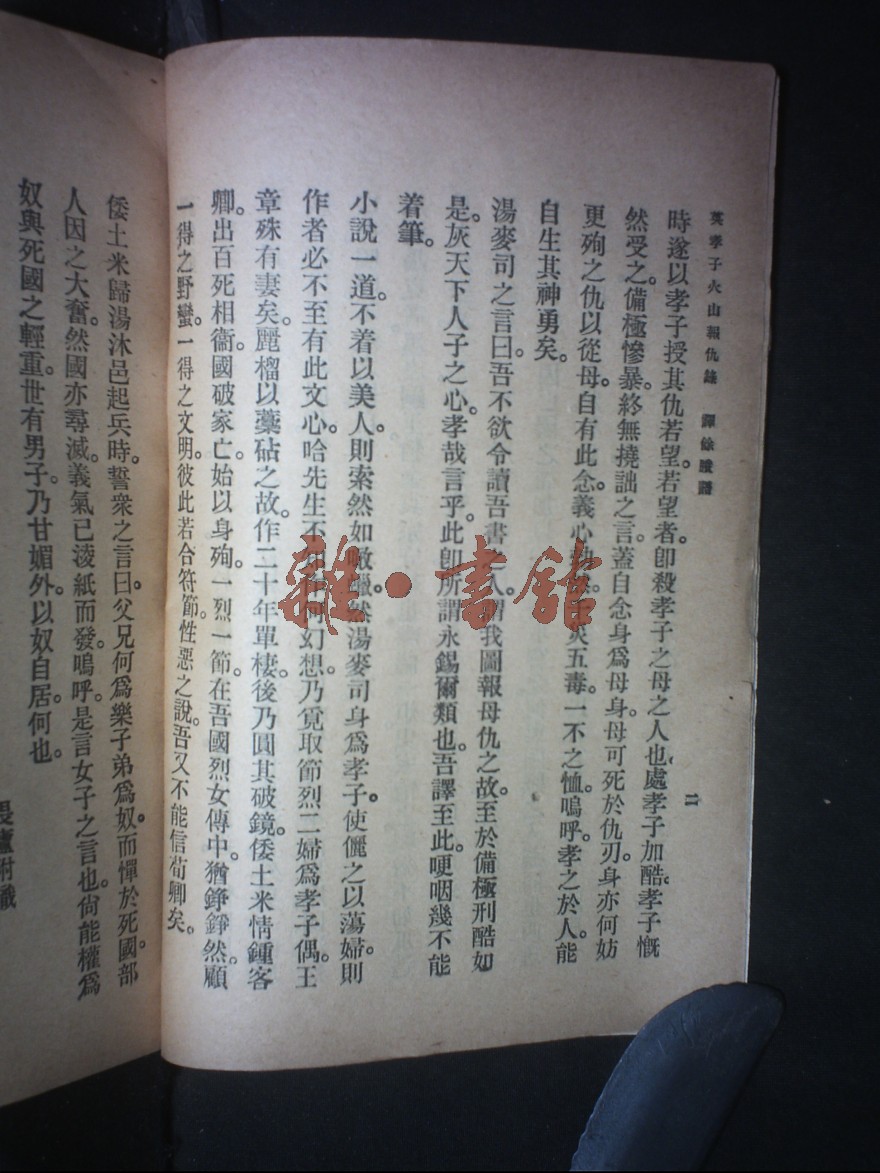 英孝子火山報仇錄 譯餘賸語
二
時遂以孝子授其仇若望。若望者。卽殺孝子之母之人也。處孝子加酷。孝子慨
然受之。備極慘暴。終無撓詘之言。蓋自念身爲母身。母可死於仇刃。身亦何妨
更殉之仇以從母。自有此念。義心
五毒。一不之恤。嗚呼。孝之於人。能
自生其神勇矣。
湯麥司之言曰。吾不欲令讀吾書之人。謂我圖報母仇之故。至於備極刑酷如
是。灰天下人子之心。孝哉言乎。此卽所謂永錫爾類也。吾譯至此。哽咽幾不能
着筆。
小說一道。不着以美人。則索然如噉蠟。然湯麥司身爲孝子。使儷之以蕩婦。則
作者必不至有此文心。哈先生不
幻想。乃竟取節烈二婦爲孝子偶。王
章殊有妻矣。麗榴以藁砧之故。作二十年單棲。後乃圓其破鏡。倭土米情鍾客
卿。出百死相衞。國破家亡。始以身殉。一烈一節。在吾國烈女傳中。猶錚錚然。顧
一得之野蠻。一得之文明。彼此若合符節。性惡之說。吾又不能信荀卿矣。
倭土米歸湯沐邑起兵時。誓衆之言曰。父兄何爲樂子弟爲奴。而憚於死國。部
人因之大奮。然國亦尋滅。義氣已淩紙而發。嗚呼。是言女子之言也。尙能權爲
奴與死國之輕重。世有男子。乃甘媚外。以奴自居。何也。
畏廬附識
雜·書館